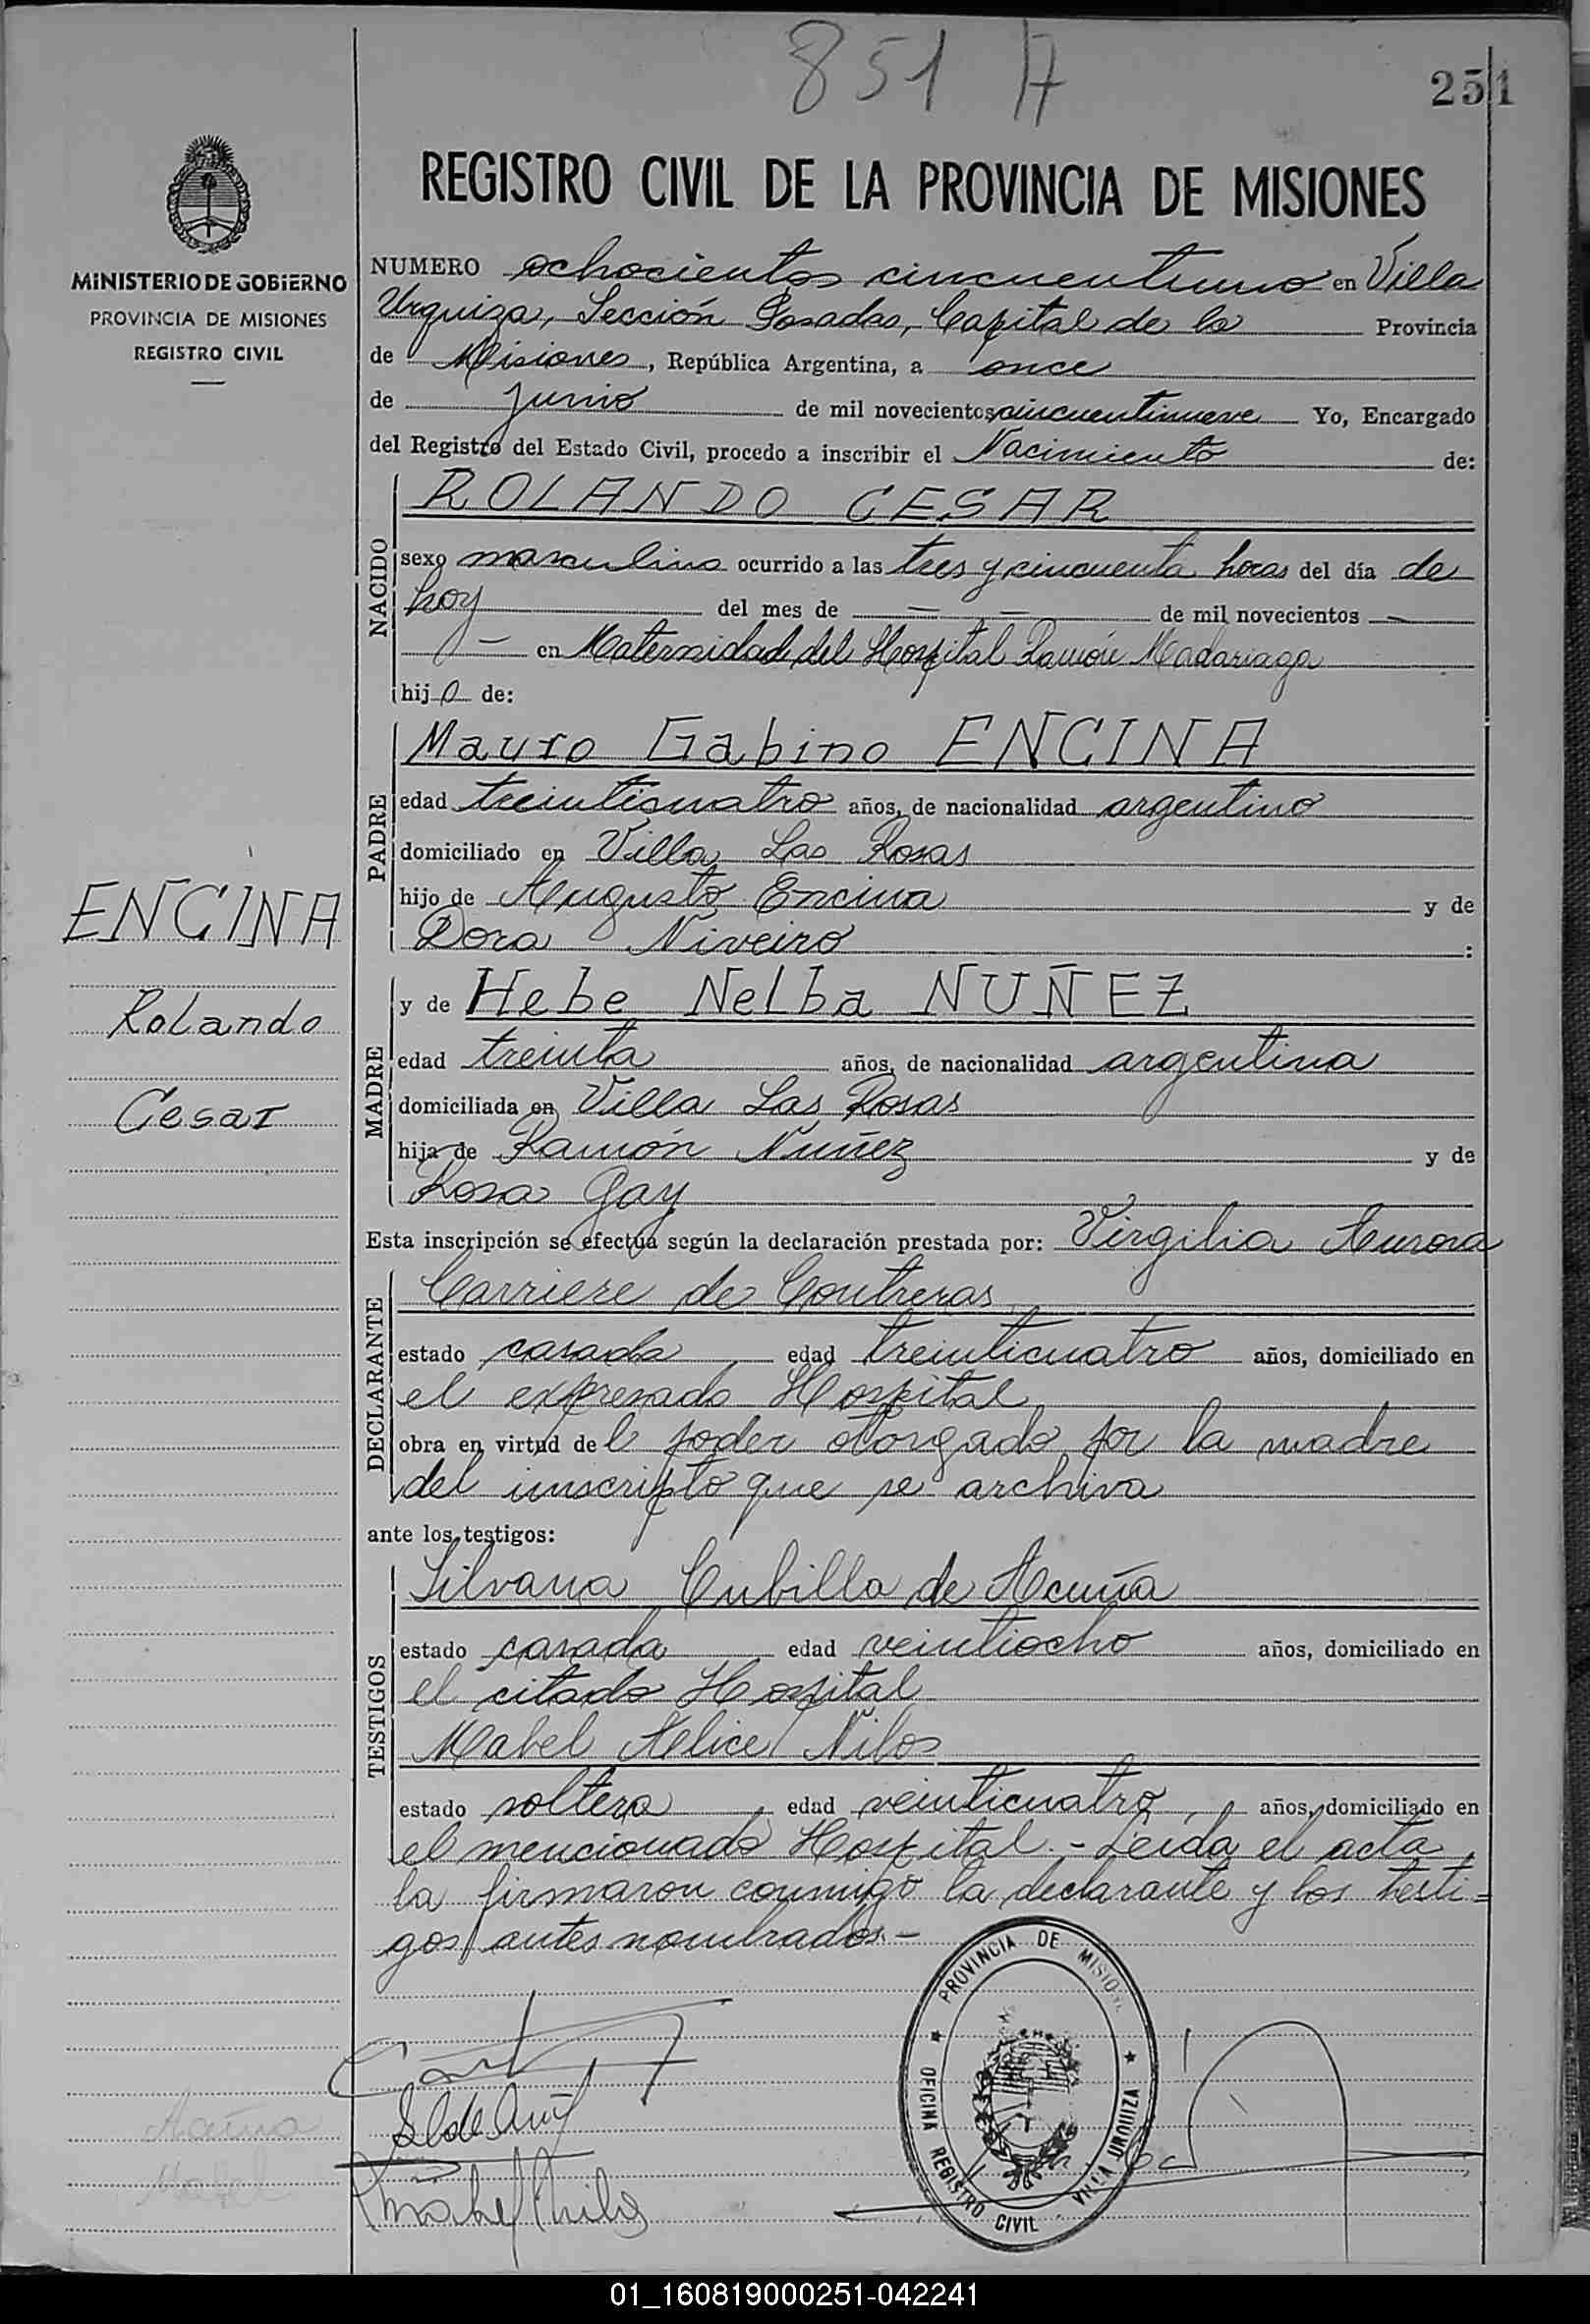 851 A
251
MINISTERIO DE GOBIERNO
PROVINCIA DE MISIONES
REGISTRO CIVIL
REGISTRO CIVIL DE LA PROVINCIA DE MISIONES
NUMERO ochocientos cincuentiuno en Villa
Urquiza, Sección Posadas, Capital de la Provincia
de Misiones, República Argentina, a once
de Junio de mil novecientos cincuentinueve Yo, Encargado
del Registro del Estado Civil, procedo a inscribir el Nacimiento de:
NACIDO
ROLANDO CESAR
sexo masculino ocurrido a las tres y cincuenta horas del día de
hoy del mes de — — de mil novecientos —
— en Maternidad del Hospital Ramón Madariaga
hijo de:
PADRE
Mauro Gabino ENCINA
edad treinticuatro años, de nacionalidad argentino
domiciliado en Villa Las Rosas
hijo de Augusto Encina y de
Dora Niveiro :
ENCINA
Rolando
Cesar
MADRE
y de Hebe Nelba NUÑEZ
edad treinta años, de nacionalidad argentina
domiciliada en Villa Las Rosas
hija de Ramón Nuñez y de
Rosa Gay
Esta inscripción se efectúa según la declaración prestada por: Virgilia Aurora
DECLARANTE
Carriere de Contreras
estado casada edad treinticuatro años, domiciliado en
el expresado Hospital
obra en virtud del poder otorgado por la madre
del inscripto que se archiva
ante los testigos:
TESTIGOS
Silvana Cubilla de Acuña
estado casada edad veintiocho años, domiciliado en
el citado Hospital
Mabel Nilos
estado soltera edad veinticuatro, años, domiciliado en
el mencionado Hospital.- Leída el acta,
la firmaron conmigo la declarante y los testi=
gos antes nombrados.-
PROVINCIA DE MISIONES
OFICINA REGISTRO CIVIL VILLA URQUIZA
01_160819000251-042241